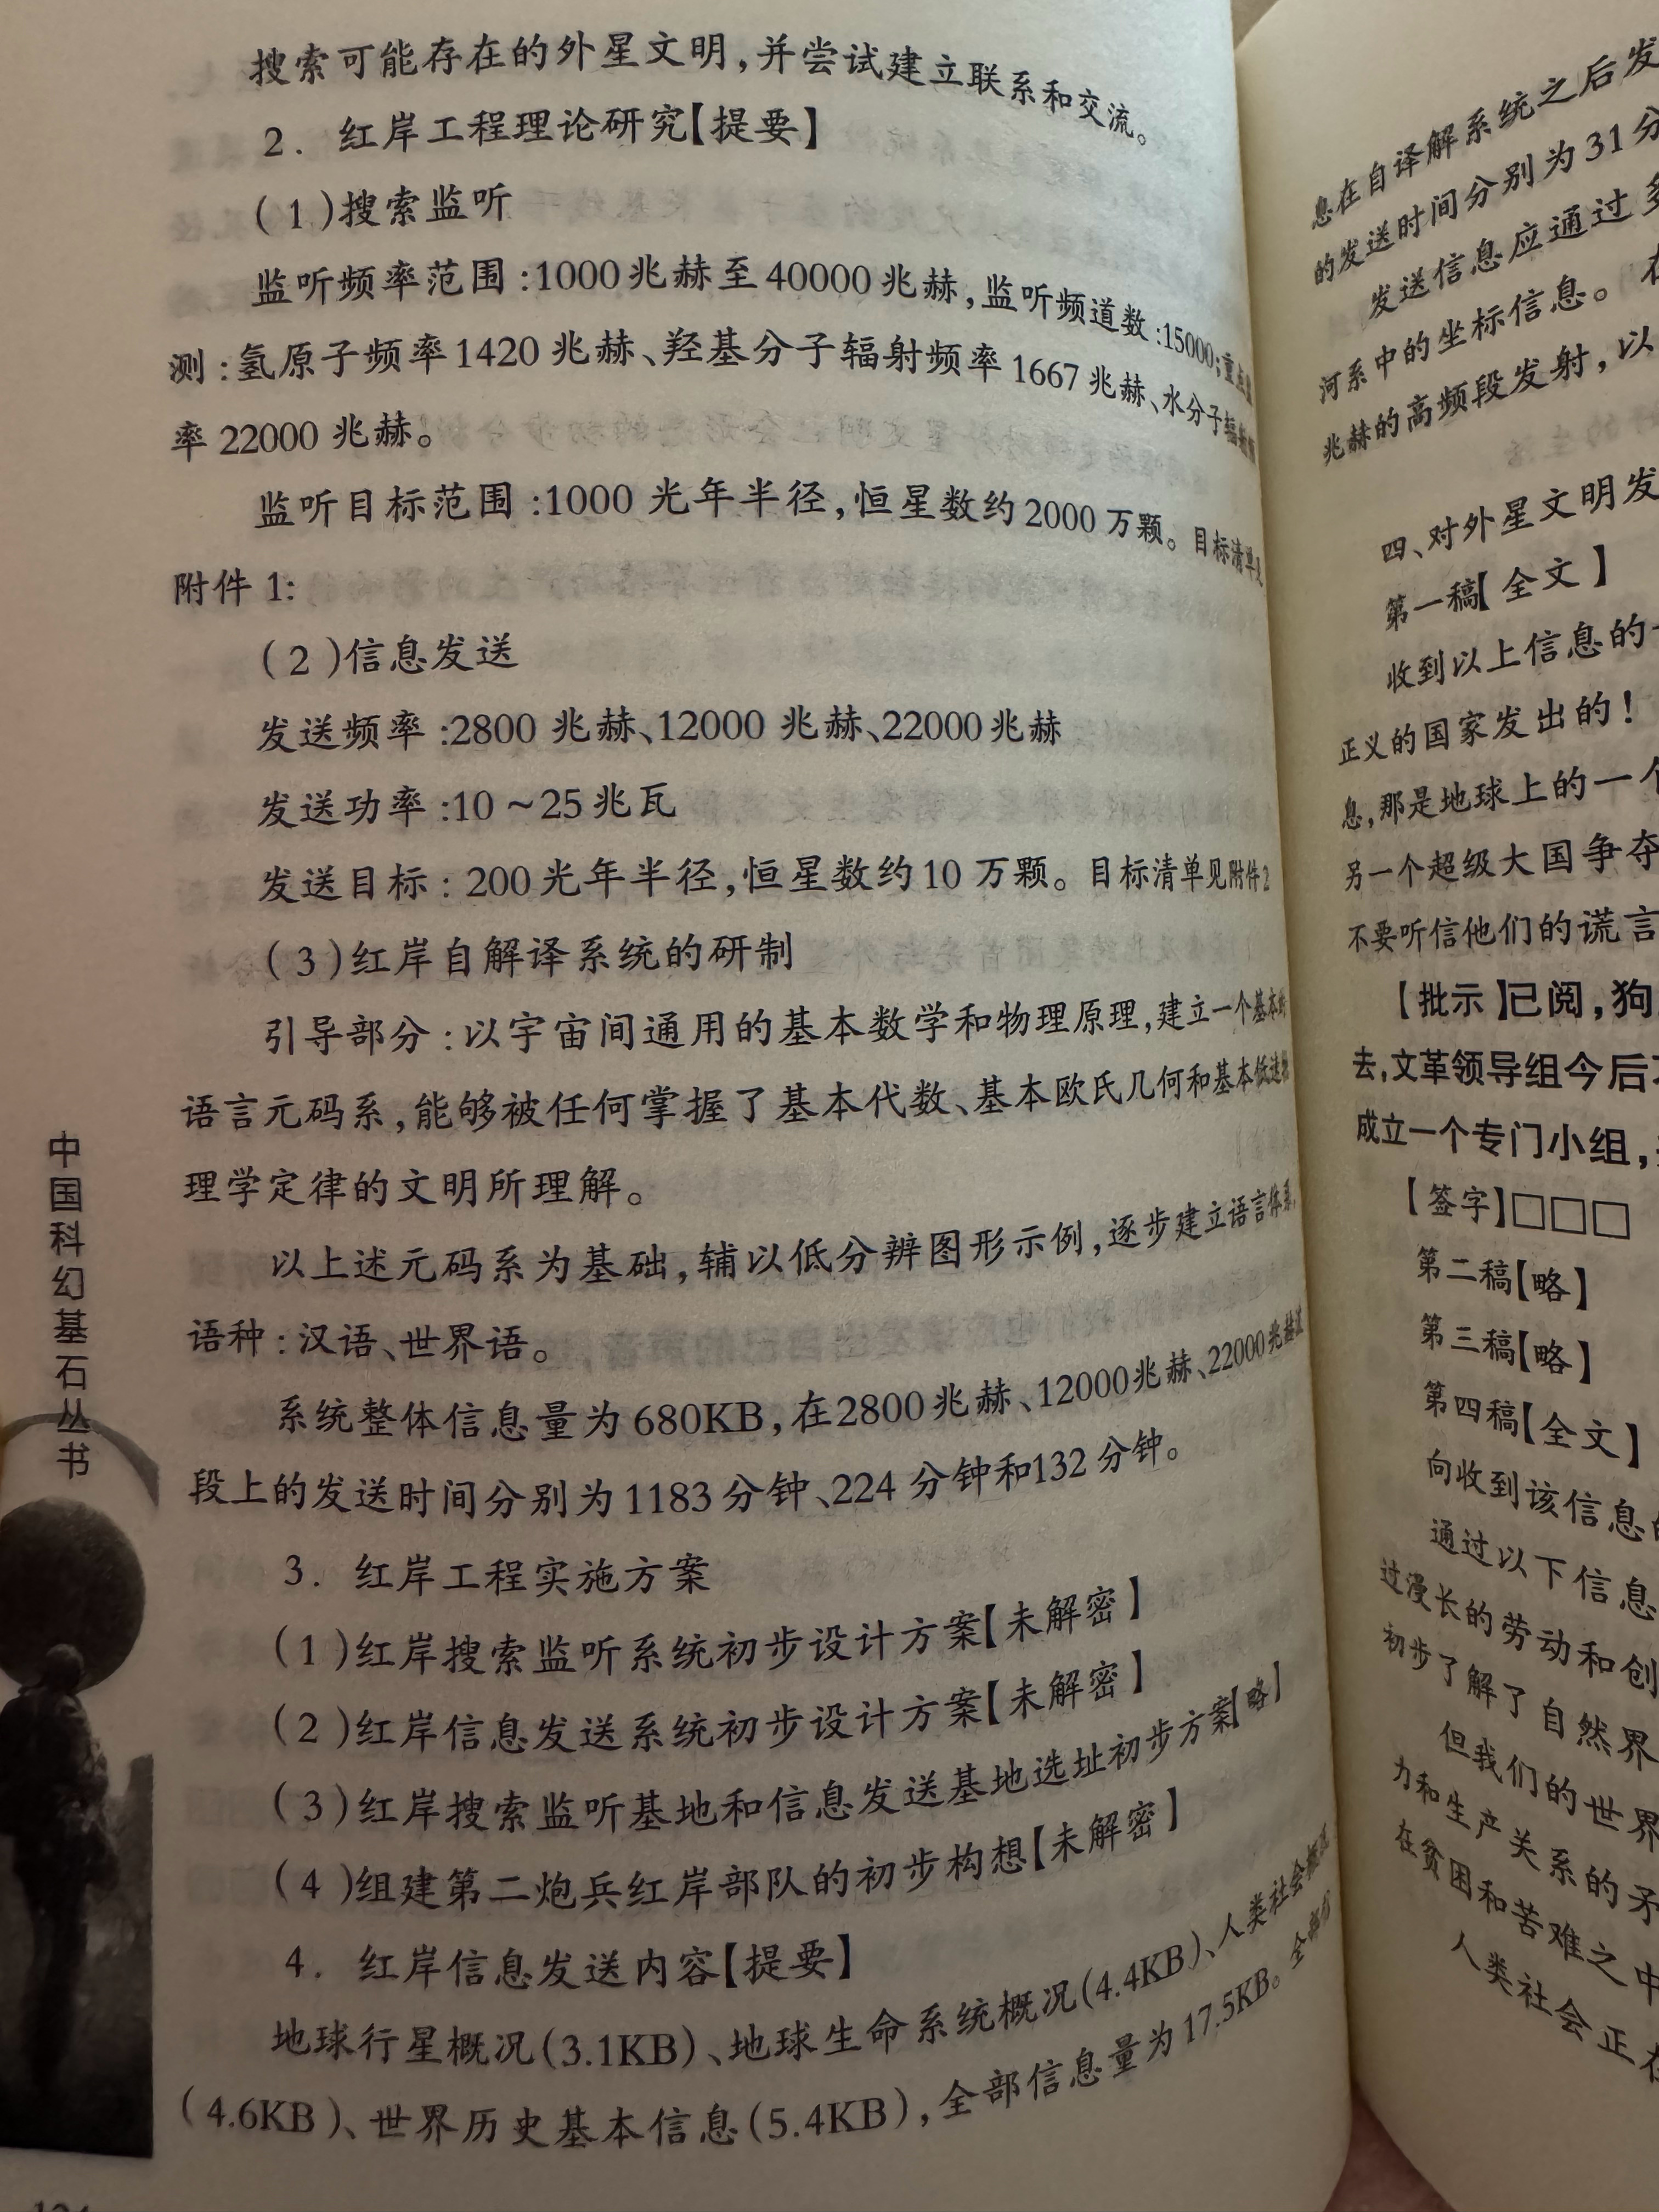 搜索可能存在的外星文明,并尝试建立联系和交流。
2. 红岸工程理论研究【提要】
(1)搜索监听
监听频率范围:1000兆赫至40000兆赫,监听频道数:15000;重点
测:氢原子频率1420兆赫、羟基分子辐射频率1667兆赫、水分子辐射
率22000兆赫。
监听目标范围:1000光年半径,恒星数约2000万颗。目标清单见
附件1:
(2)信息发送
发送频率:2800兆赫、12000兆赫、22000兆赫
发送功率:10~25兆瓦
发送目标:200光年半径,恒星数约10万颗。目标清单见附件2
(3)红岸自解译系统的研制
引导部分:以宇宙间通用的基本数学和物理原理,建立一个基本的
语言元码系,能够被任何掌握了基本代数、基本欧氏几何和基本低速
理学定律的文明所理解。
以上述元码系为基础,辅以低分辨图形示例,逐步建立语言体系,
语种:汉语、世界语。
系统整体信息量为680KB,在2800兆赫、12000兆赫、22000兆赫
段上的发送时间分别为1183分钟、224分钟和132分钟。
3. 红岸工程实施方案
(1)红岸搜索监听系统初步设计方案【未解密】
(2)红岸信息发送系统初步设计方案【未解密】
(3)红岸搜索监听基地和信息发送基地选址初步方案【略】
(4)组建第二炮兵红岸部队的初步构想【未解密】
4. 红岸信息发送内容【提要】
地球行星概况(3.1KB)、地球生命系统概况(4.4KB)、人类社会概况
(4.6KB)、世界历史基本信息(5.4KB),全部信息量为17.5KB。全部
中国科幻基石丛书
息在自译解系统之后发
的发送时间分别为31分
发送信息应通过多
河系中的坐标信息。在
兆赫的高频段发射,以
四、对外星文明发
第一稿【全文】
收到以上信息的
正义的国家发出的!
息,那是地球上的一个
另一个超级大国争夺
不要听信他们的谎言
【批示】已阅,狗
去,文革领导组今后不
成立一个专门小组,
【签字】□□□
第二稿【略】
第三稿【略】
第四稿【全文】
向收到该信息的
通过以下信息
过漫长的劳动和创
初步了解了自然界
但我们的世界
力和生产关系的矛
在贫困和苦难之中
人类社会正在